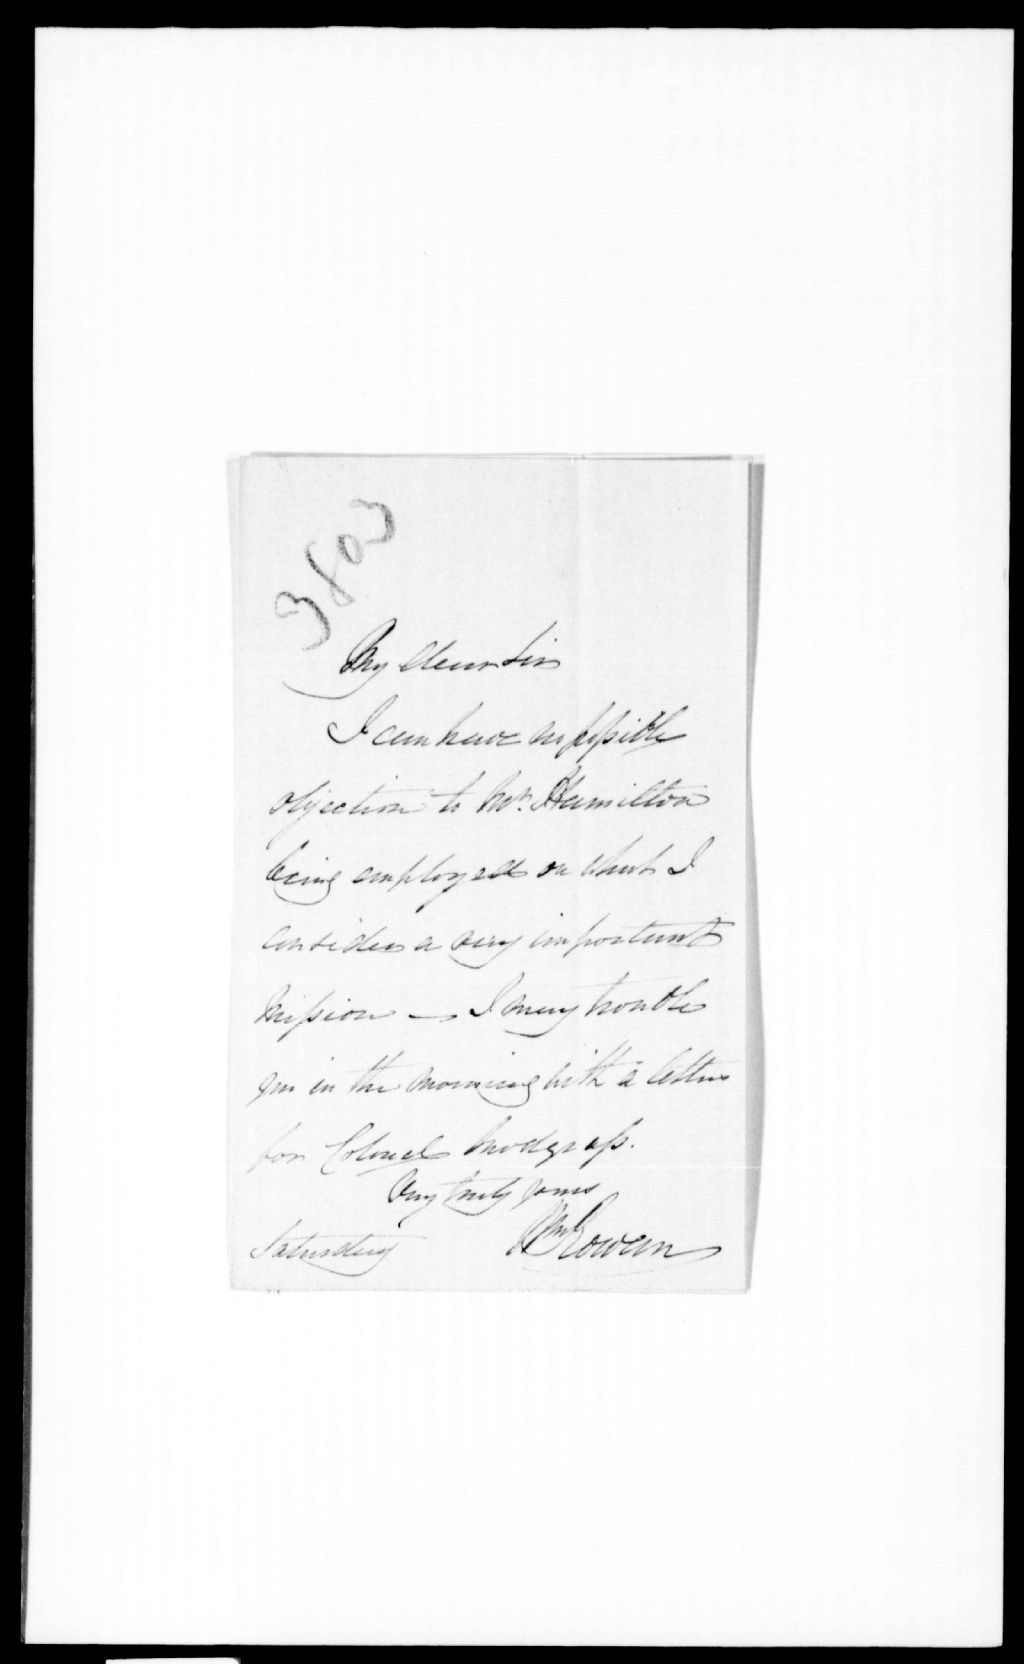 3803
My dear Sir
I can have no possible
objection to Mr. Hamilton
being employed on what I
consider a very important
Mission — I may trouble
you in the morning with a letter
for Colonel Snodgrass.
Very truly yours
Wm Rowan
Saturday